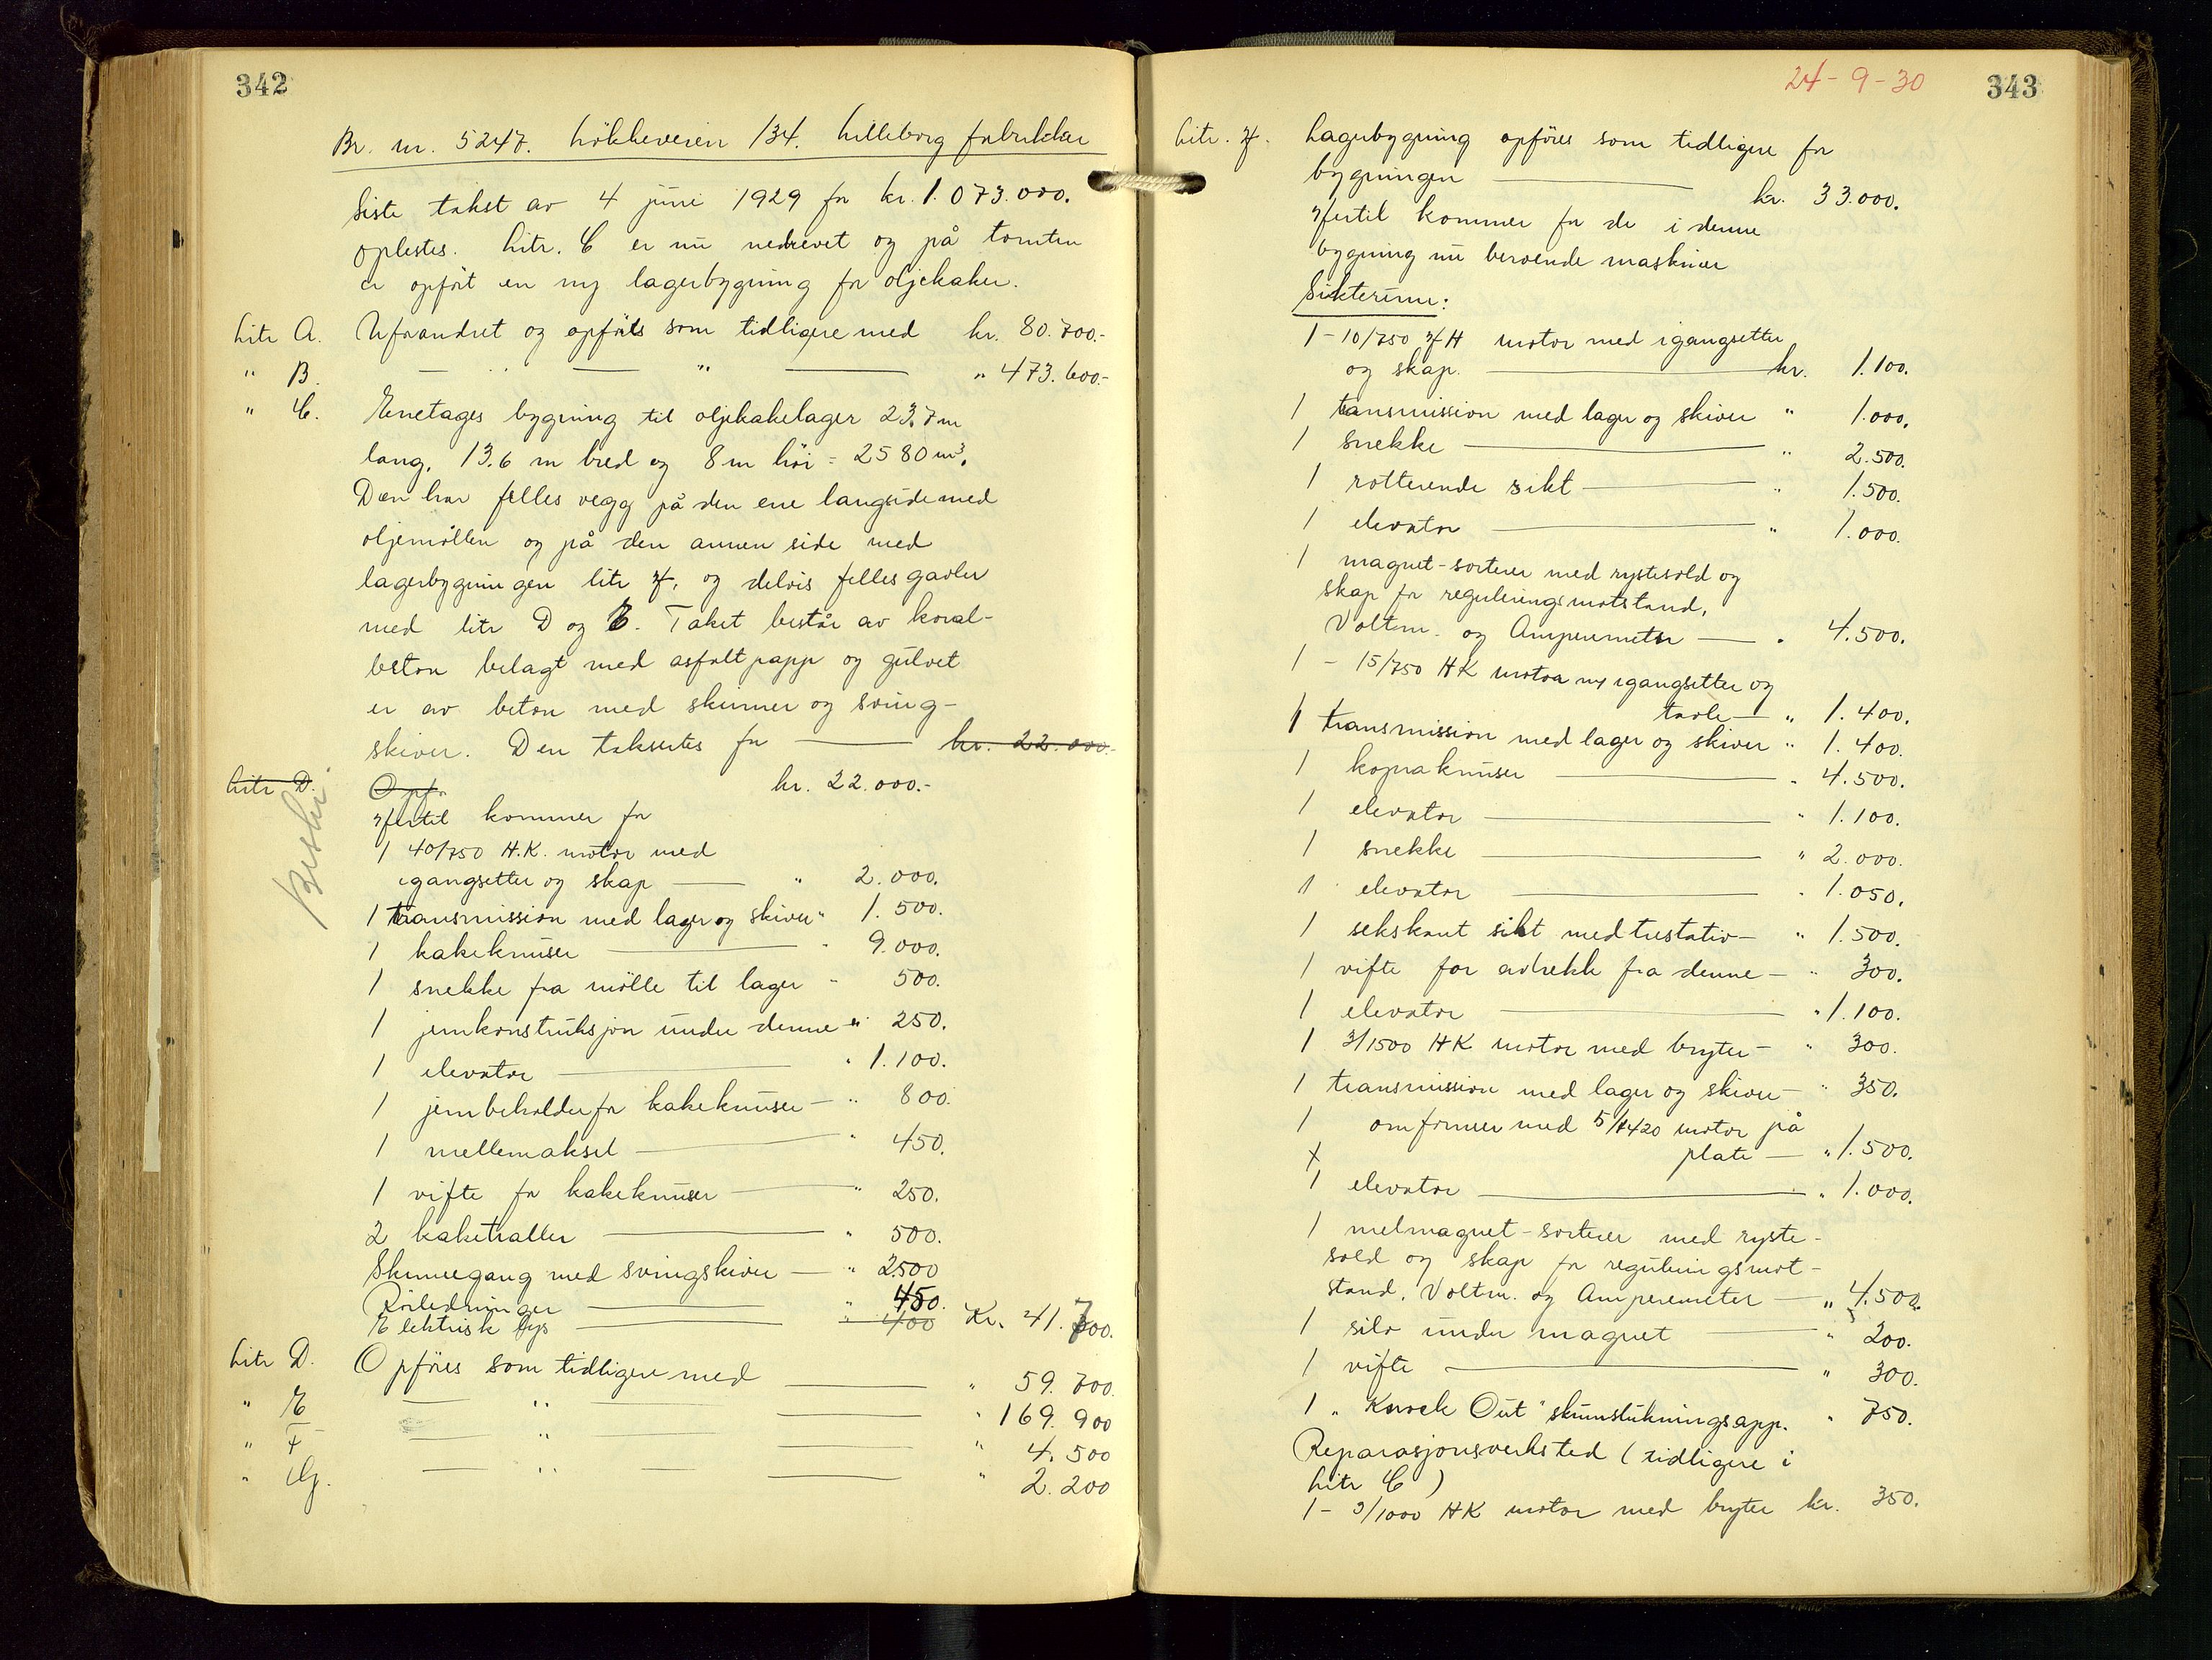 342
Br. nr. 5247. Lökkeveien 134. Lilleborg fabrikker
Siste takst av 4 juni 1929 for kr. 1.073.000.
oplestes. Litr. C er nu nedrevet og på tomten
er opført en ny lagerbygning for oljekaker.
Litr A. Uforandret og opføres som tidligere med kr. 80.700.-
" B. — " — " — " 473.600.-
" C. Enetages bygning til oljekakelager 23.7 m
lang, 13.6 m bred og 8 m höi = 2580 m³.
Den har felles vegg på den ene langside med
oljemöllen og på den annen side med
lagerbygningen litr H. og delvis felles gavler
med litr D og E. Taket består av koral-
beton belagt med asfaltpapp og gulvet
er av beton med skinner og sving-
skiver. Den takseres for — kr. 22.000.-
Litr D. Opfr kr. 22.000.-
Beskr.
Hertil kommer for
1 40/750 H.K. motor med
igangsetter og skap — " 2.000.
1 transmission med lager og skiver " 1.500.
1 kakeknuser — " 9.000.
1 snekke fra mölle til lager " 500.
1 jernkonstruksjon under denne " 250.
1 elevator — " 1.100.
1 jernbeholder for kakeknuser — " 800.
1 mellemaksel — " 450.
1 vifte for kakeknuser — " 250.
2 kaketraller — " 500.
Skinnegang med svingskiver — " 2500
Rörledninger — " 450.
Elektrisk lys — " 400 Kr. 41.700.
Litr D. Opföres som tidligere med — " 59.700.
" E — " — — " 169.900
" F — " — — " 4.500
" G. — " — — " 2.200
24-9-30 343
Litr. H. Lagerbygning opföres som tidligere for
bygningen — kr. 33.000.
Hertil kommer for de i denne
bygning nu beroende maskiner
Sikterium:
1 - 10/750 HK motor med igangsetter
og skap. — kr. 1.100.
1 transmission med lager og skiver " 1.000.
1 snekke — " 2.500.
1 rotterende sikt — " 1.500.
1 elevator — " 1.000.
1 magnet-sorterer med rystesold og
skap for reguleringsmotstand,
Voltm. og Amperemeter — " 4.500.
1 - 15/750 HK motor m/ igangsetter og
tavle — " 1.400.
1 transmission med lager og skiver " 1.400.
1 kopraknuser — " 4.500.
1 elevator — " 1.100.
1 snekke — " 2.000.
1 elevator — " 1.050.
1 sekskant sikt med trestativ — " 1.500.
1 vifte for avtrekk fra denne — " 300.
1 elevator — " 1.100.
1 3/1500 HK motor med bryter — " 300.
1 transmission med lager og skiver — " 350.
1 omformer med 5/1420 motor på
plate — " 1.500.
1 elevator — " 1.000.
1 melmagnet-sorterer med ryste-
sold og skap for reguleringsmot-
stand, Voltm. og Amperemeter — " 4.500.
1 silo under magnet — " 200.
1 vifte — " 300.
1 "Knock Out" skumslukningsapp. " 750.
Reparasjonsverksted (tidligere i
Litr C)
1 - 3/1000 HK motor med bryter kr. 350.